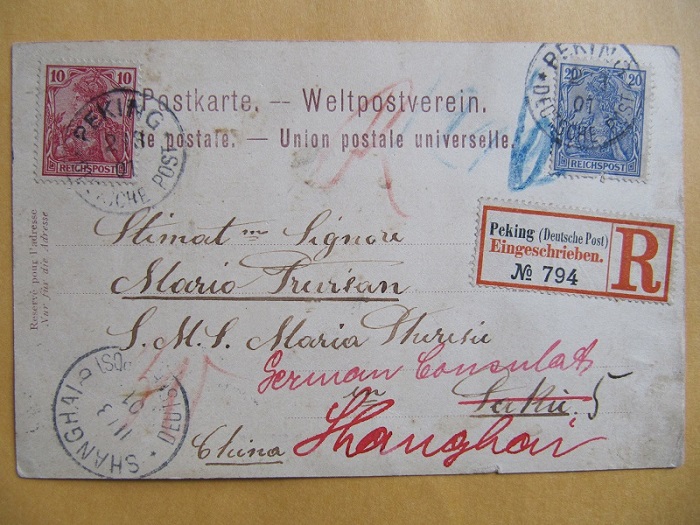 10 10
REICHSPOST
20 20
REICHSPOST
PEKING
DEUTSCHE POST
PEKING
DEUTSCHE POST
01
Postkarte. — Weltpostverein.
e postale. — Union postale universelle.
R
Reservé pour l'adresse
Nur für die Adresse
Peking (Deutsche Post)
Eingeschrieben.
№ 794
R
Stimat mo Signore
Mario Trevisan
S. M. S. Maria Theresie
German Consulat
in Taku 5
China Shanghai
SHANGHAI
DEUTSCHE POST
11/3
01